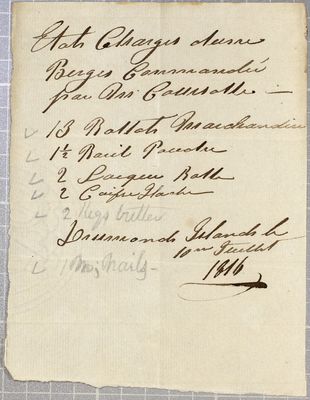 Etats Charges d'une
Berges Commandée
par Mr Courtolle —
13 Ballots Marchandise
1½ Baril Poudre
2 Sacques Balle
2 Caisse Hache
2 Kegs butter
Drumonds Islands le
10m Juillet
1816
1 Nails -